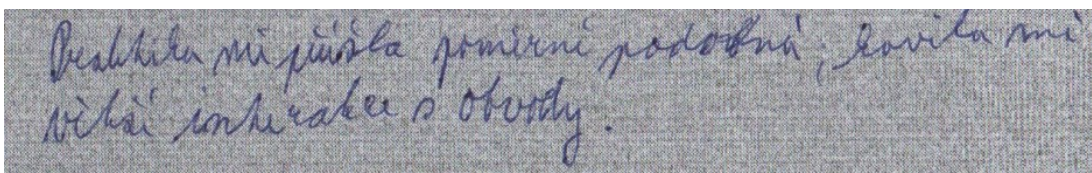 Praktika mi přišla poměrně podobná, bavila mi
větší interakce s obvody.